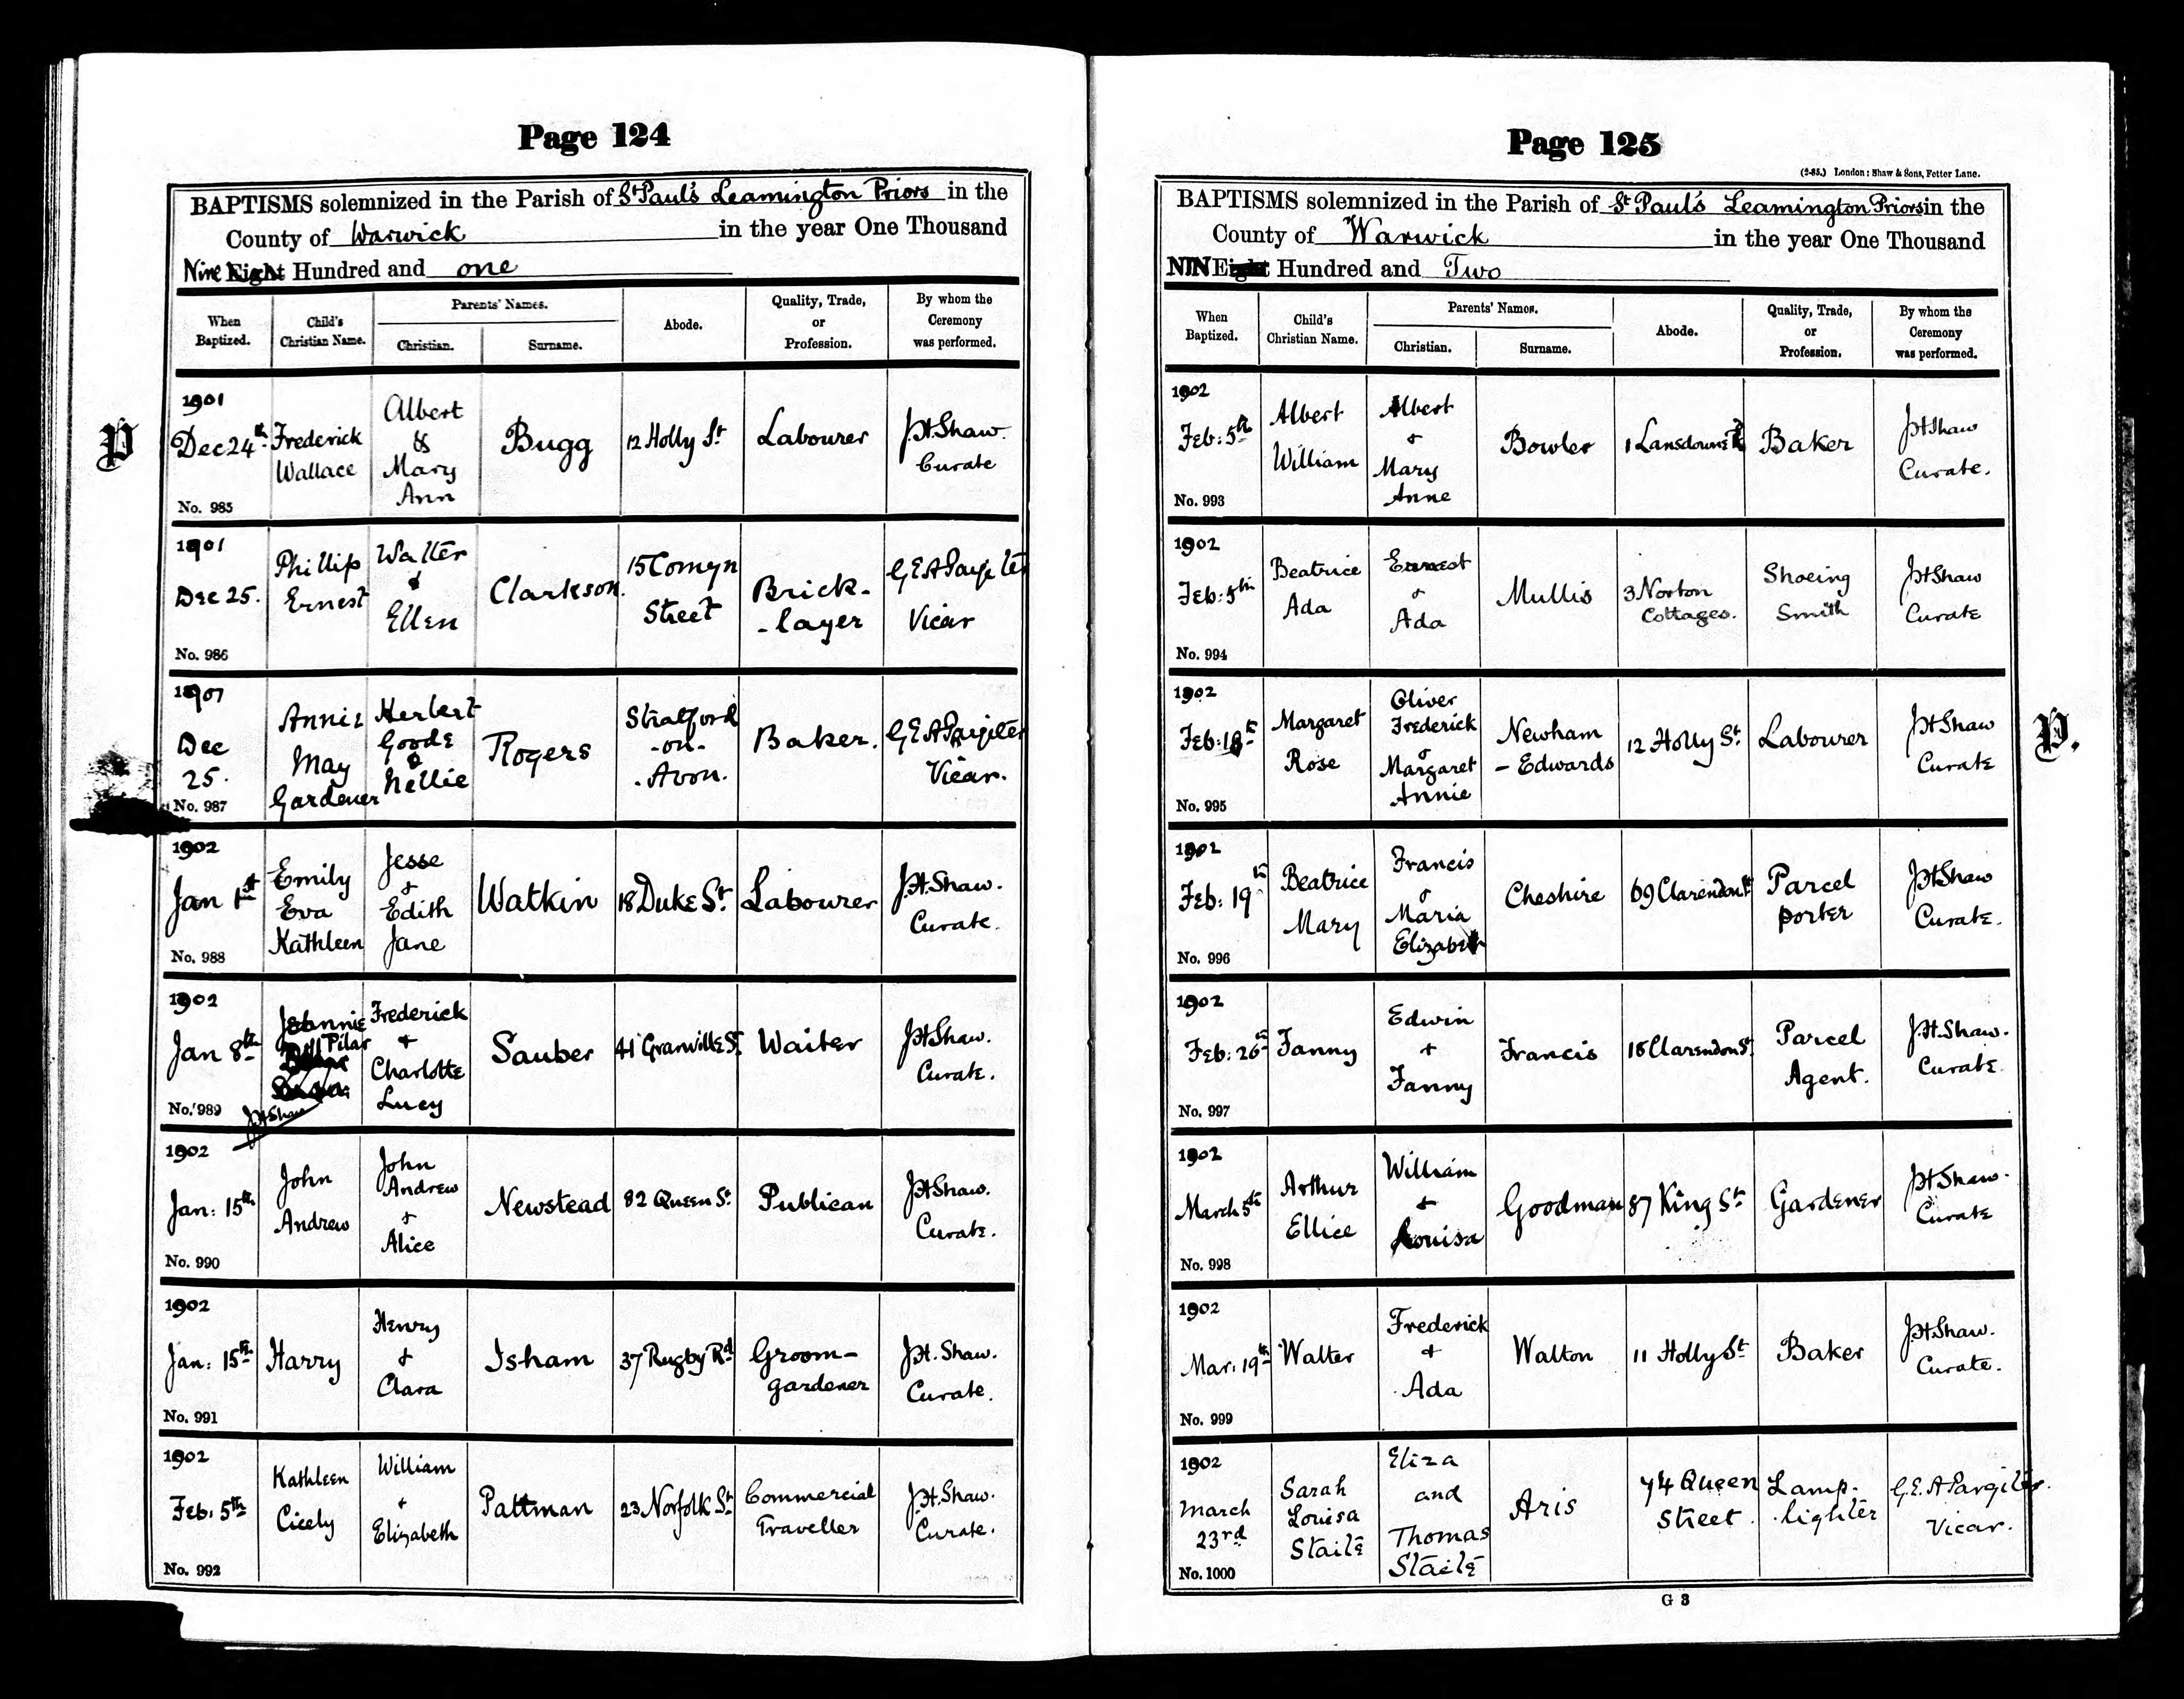 Page 124
BAPTISMS solemnized in the Parish of St Paul's Leamington Priors in the
County of Warwick in the year One Thousand
Nine Eight Hundred and one
When Baptized.
Child's Christian Name.
Parents' Names.
Christian.
Surname.
Abode.
Quality, Trade, or Profession.
By whom the Ceremony was performed.
P
1901
Dec 24th
No. 985
Frederick
Wallace
Albert
&
Mary
Ann
Bugg
12 Holly St
Labourer
J.H. Shaw.
Curate
1901
Dec 25.
No. 986
Phillip
Ernest
Walter
&
Ellen
Clarkson.
15 Comyn
Street
Brick-
-layer
G.E.A. Pargiter
Vicar
1901
Dec
25.
No. 987
Annie
May
Gardener
Herbert
Goode
&
Nellie
Rogers
Stratford
-on-
-Avon.
Baker.
G.E.A. Pargiter
Vicar.
1902
Jan 1st
No. 988
Emily
Eva
Kathleen
Jesse
+
Edith
Jane
Watkin
18 Duke St.
Labourer
J.H. Shaw.
Curate.
1902
Jan 8th
No. 989
Pilar
J.H. Shaw
Frederick
+
Charlotte
Lucy
Sauber
41 Granville St.
Waiter
J.H. Shaw.
Curate.
1902
Jan: 15th
No. 990
John
Andrew
John
Andrew
+
Alice
Newstead
82 Queen St.
Publican
J.H. Shaw.
Curate.
1902
Jan: 15th
No. 991
Harry
Henry
+
Clara
Isham
37 Rugby Rd
Groom-
gardener
J.H. Shaw.
Curate.
1902
Feb: 5th
No. 992
Kathleen
Cicely
William
+
Elizabeth
Pattman
23 Norfolk St
Commercial
Traveller
J.H. Shaw.
Curate.
Page 125
(2-85.) London: Shaw & Sons, Fetter Lane.
BAPTISMS solemnized in the Parish of St Paul's Leamington Priors in the
County of Warwick in the year One Thousand
NINE Eight Hundred and Two
When Baptized.
Child's Christian Name.
Parents' Names.
Christian.
Surname.
Abode.
Quality, Trade, or Profession.
By whom the Ceremony was performed.
1902
Feb: 5th
No. 993
Albert
William
Albert
+
Mary
Anne
Bowler
1 Lansdowne
Baker
J.H. Shaw
Curate.
1902
Feb: 5th
No. 994
Beatrice
Ada
Ernest
+
Ada
Mullis
3 Norton
Cottages.
Shoeing
Smith
J.H. Shaw
Curate
1902
Feb: 18th
No. 995
Margaret
Rose
Oliver
Frederick
+
Margaret
Annie
Newham
- Edwards
12 Holly St.
Labourer
J.H. Shaw
Curate
P.
1902
Feb: 19th
No. 996
Beatrice
Mary
Francis
+
Maria
Elizabeth
Cheshire
69 Clarendon St
Parcel
porter
J.H. Shaw
Curate.
1902
Feb: 26th
No. 997
Fanny
Edwin
+
Fanny
Francis
18 Clarendon St.
Parcel
Agent.
J.H. Shaw.
Curate.
1902
March 5th
No. 998
Arthur
Ellice
William
+
Louisa
Goodman
87 King St
Gardener
J.H. Shaw.
Curate
1902
Mar: 19th
No. 999
Walter
Frederick
+
Ada
Walton
11 Holly St
Baker
J.H. Shaw.
Curate.
1902
March
23rd
No. 1000
Sarah
Louisa
Staite
Eliza
and
Thomas
Staite
Aris
74 Queen
Street.
Lamp-
-lighter
G.E.A. Pargiter.
Vicar.
G 3